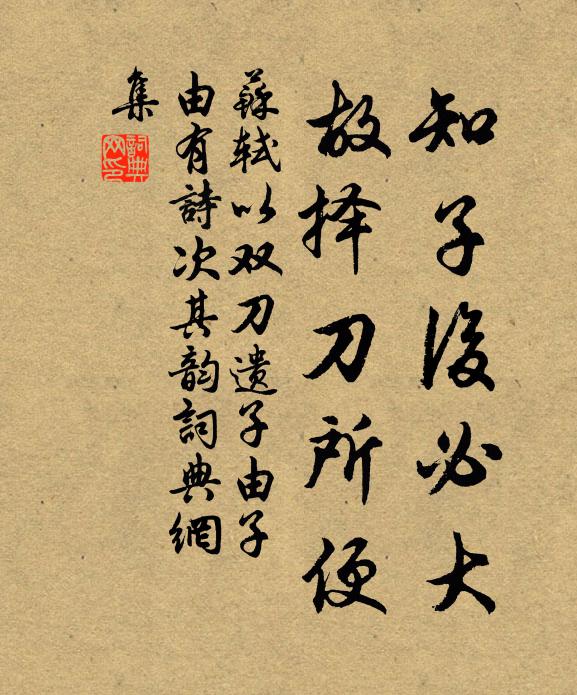 知子後必大
故择刀所便
蘇軾以双刀遗子由子
由有詩次其韵詞典網
集
詞典網印